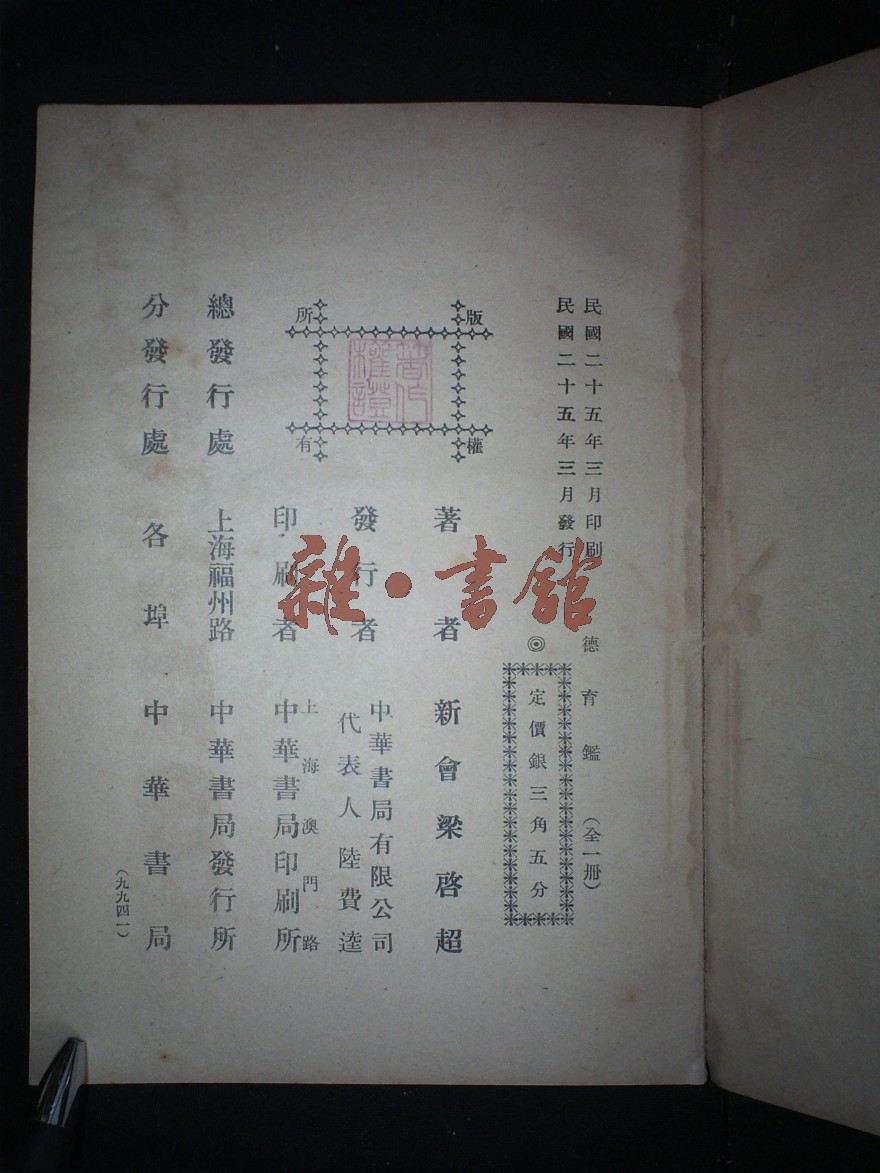 民國二十五年三月印刷
民國二十五年三月發行
德育鑑(全一册)
◎定價銀三角五分
版權所有
著作權證
著者 新會梁啓超
發行者 中華書局有限公司
代表人陸費逵
印刷者 上海澳門路
中華書局印刷所
總發行處 上海福州路 中華書局發行所
分發行處 各埠 中華書局
(九九四一)
雜·書館